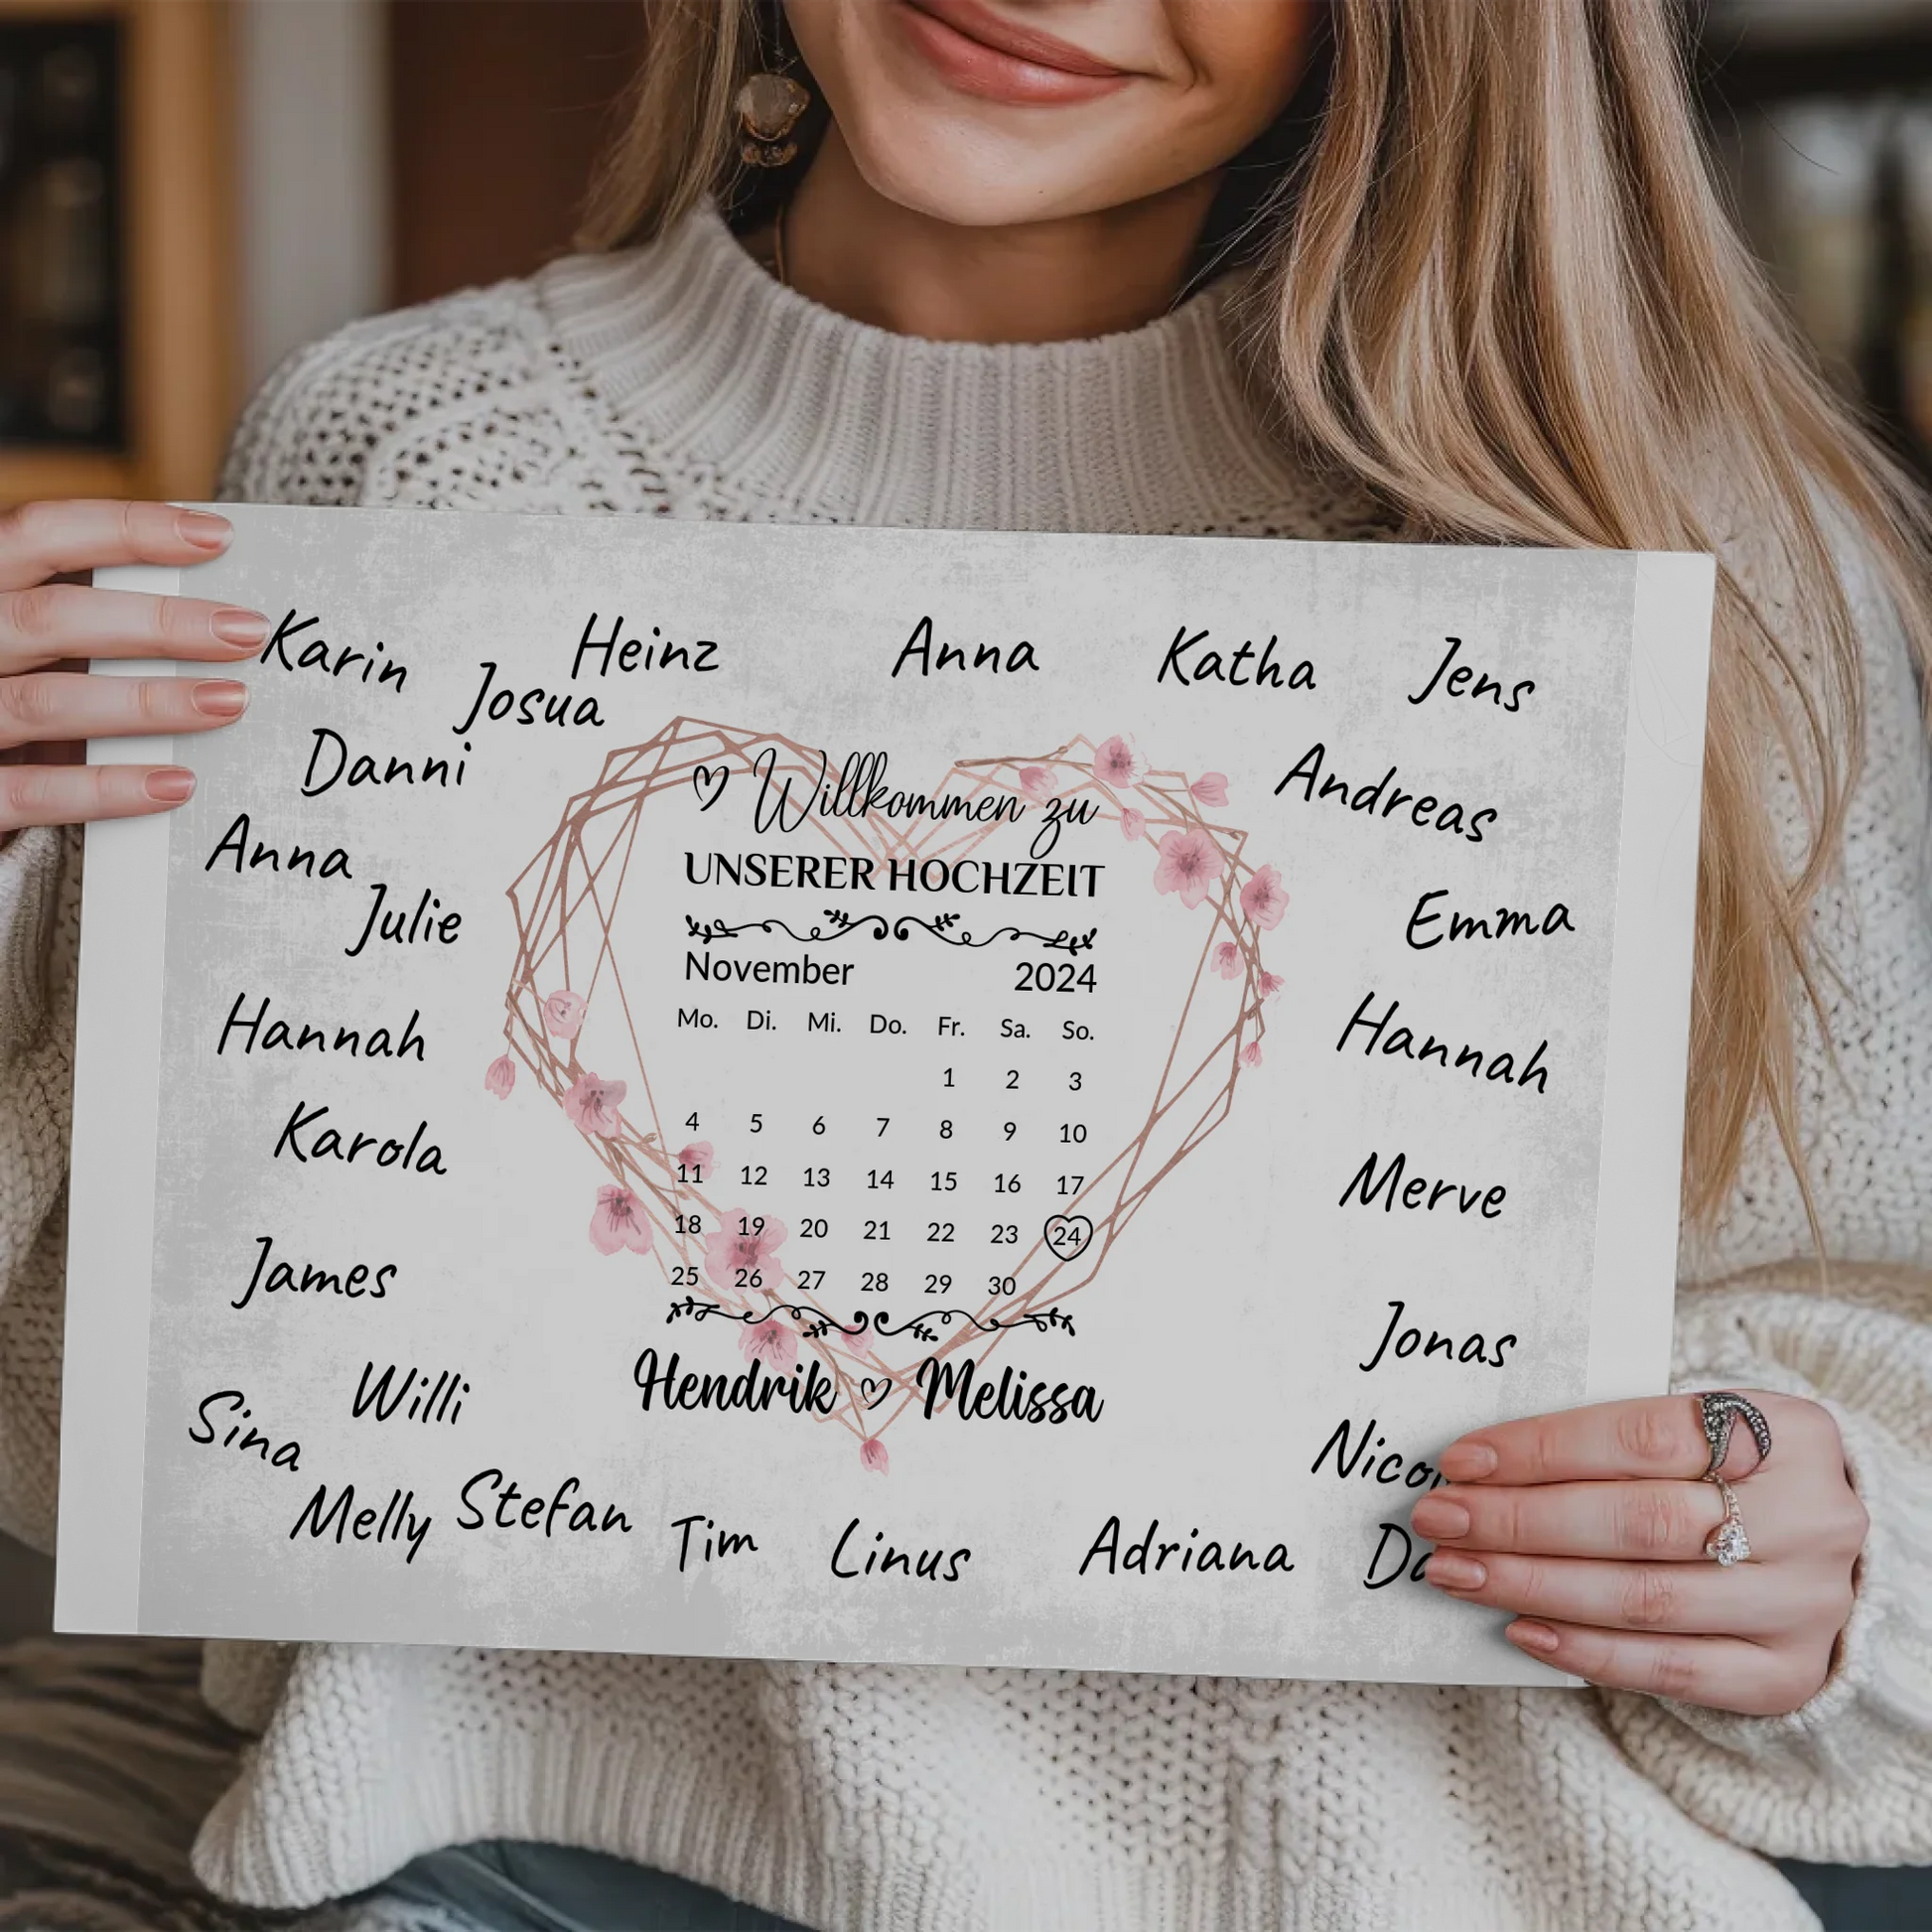 Karin
Heinz
Anna
Katha
Jens
Josua
Danni
Andreas
Anna
Julie
Emma
Hannah
Hannah
Karola
Merve
James
Jonas
Willi
Sina
Melly
Stefan
Tim
Linus
Adriana
Willkommen zu
UNSERER HOCHZEIT
November 2024
Mo. Di. Mi. Do. Fr. Sa. So.
1 2 3
4 5 6 7 8 9 10
11 12 13 14 15 16 17
18 19 20 21 22 23 24
25 26 27 28 29 30
Hendrik ♡ Melissa